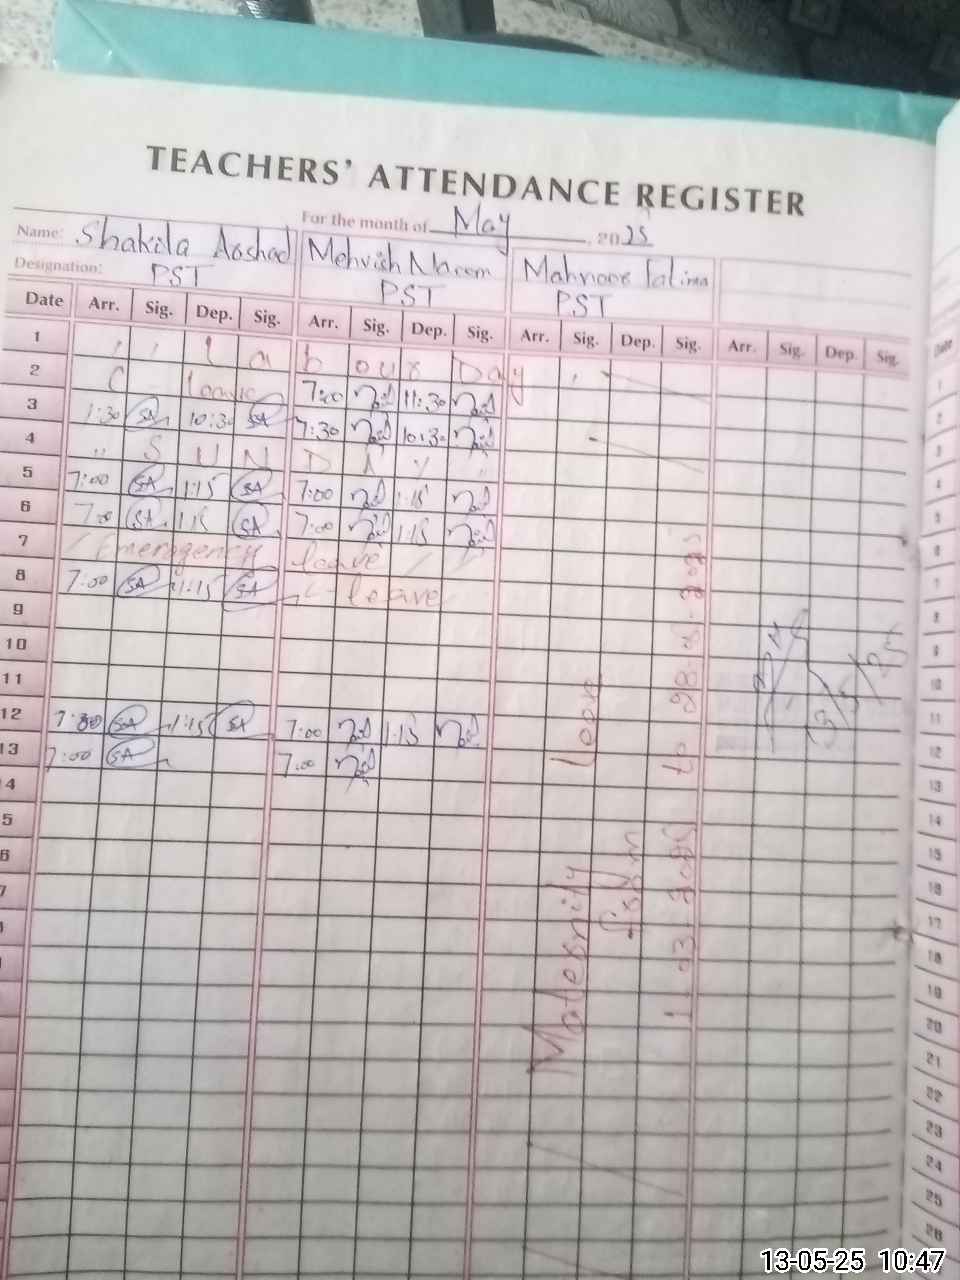 TEACHERS' ATTENDANCE REGISTER
For the month of May, 2025
Name: Shakila Arshad Mehvish Naeem Mahnoor Fatima
Designation: PST PST PST
Date Arr. Sig. Dep. Sig. Arr. Sig. Dep. Sig. Arr. Sig. Dep. Sig. Arr. Sig. Dep. Sig.
1 Labour Day
2 C - Leave 7:00 11:30
3 7:30 SA 10:30 SA 7:30 10:30
4 " SUNDAY "
5 7:00 SA 1:15 SA 7:00 1:15
6 7:00 SA 1:15 SA 7:00 1:15
7 Emergency leave
8 7:00 SA 1:15 SA C-leave
9
10
11
12 7:00 SA 1:15 SA 7:00 1:15
13 7:00 SA 7:00
4
5
6
7
Maternity Leave
from
11.03.2025 to
13/5/25
Date
1
2
3
4
5
6
7
8
9
10
11
12
13
14
15
16
17
18
19
20
21
22
23
24
25
26
13-05-25 10:47